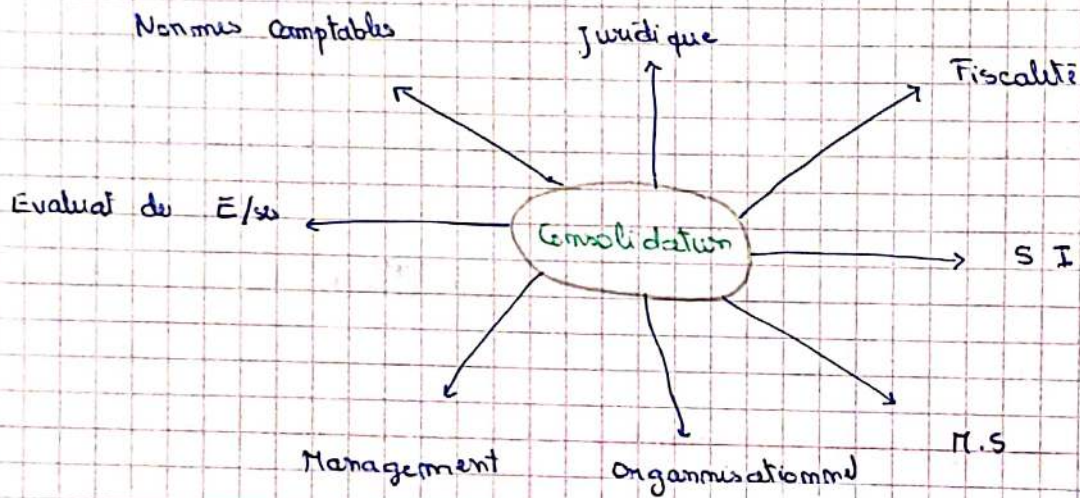 Normes Comptables
Juridique
Fiscalité
Evaluat de E/ses
Consolidation
S I
Management
Organnisationnel
M.S